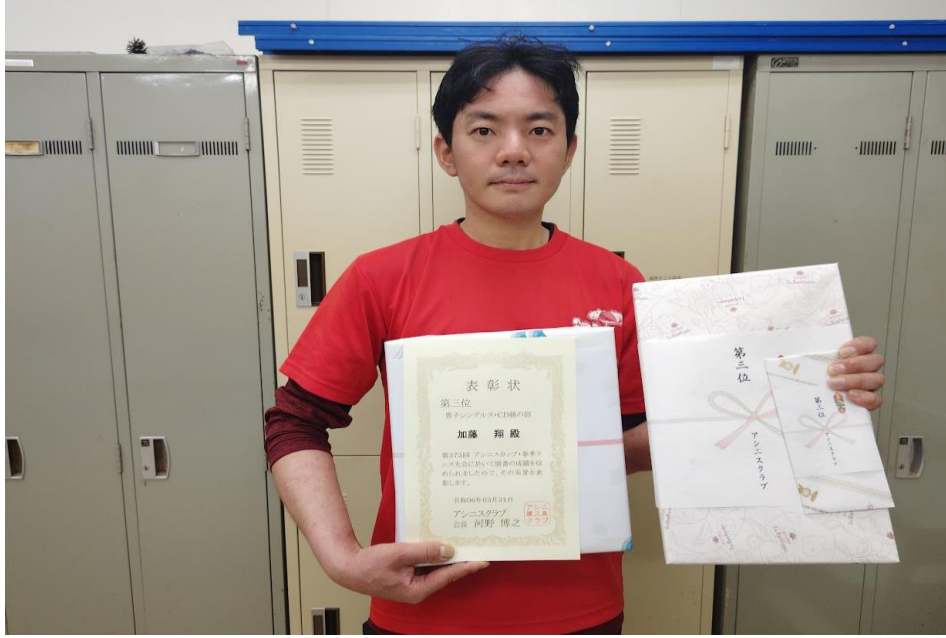 表彰状
第三位
男子シングルス・CD級の部
加藤 翔 殿
第373回 アシニスカップ・春季テ
ニス大会に於いて頭書の成績を収
められましたので、その栄誉を表
彰します。
令和06年03月31日
アシニスクラブ
会長 河野 博之
第三位
アシニスクラブ
第三位
アシニスクラブ